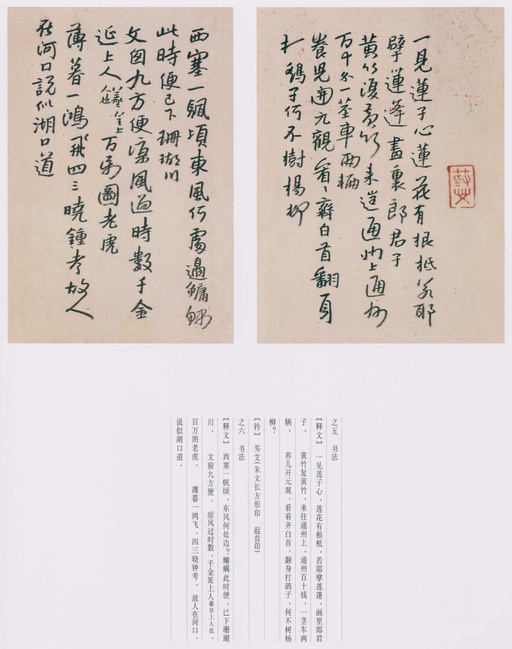 一見蓮子心蓮花有根柢若耶
擘蓮蓬畫裏郎君子
黃竹復黃竹來往通州上通州
百十錢一莖車兩輛
養兒開元觀看〻齊白首翻身
打鴿子何不樹楊柳
西塞一帆頃東風何處邊鱅
此時便已下珊瑚川
文囱九方便涼風過時數千金
延上人羲皇上人也百萬圖老虎
薄暮一鴻飛四三曉鍾考故人
在河口說似湖口道
之五 书法
【释文】 一见莲子心，莲花有根柢。若耶擘莲蓬，画里郎君
子。 黄竹复黄竹，来往通州上。通州百十钱，一茎车两
辆。 养儿开元观，看看齐白首。翻身打鸽子，何不树杨
柳？
【钤】 艾(朱文长方形印 起首印)
之六 书法
【释文】 西塞一帆顷，东风何处边？鳙此时便，已下珊瑚
川。 文窗九方便，凉风过时数。千金延上人羲皇上人也，
百万图老虎。 薄暮一鸿飞，四三晓钟考。故人在河口，
说似湖口道。